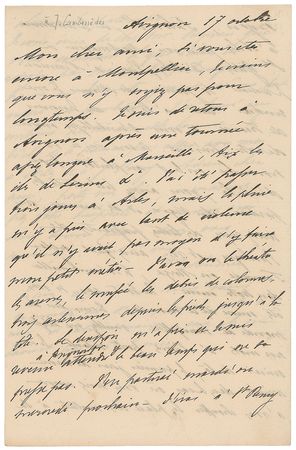 à J. Cambessèdes
Avignon 17 octobre
Mon cher ami, Si vous êtes
encore à Montpellier, je crains
que vous n'y soyez pas pour
longtemps. Je suis de retour à
Avignon après une tournée
assez longue à Marseille, Aix les
îles de Lerins &a J'ai été passer
trois jours à Arles, mais la pluie
m'y a pris avec tant de violence
qu'il n'y avait pas moyen d'y faire
mon petit métier. J'avais vu le théâtre
le musée, les débris de colonnes,
depuis les pieds jusqu'à la
tête. Le m'a pris et je suis
revenu à Avignon attendre le beau temps que ne se
presse pas. J'en partirai mardi ou
mercredi prochain - J'irai à St Remy